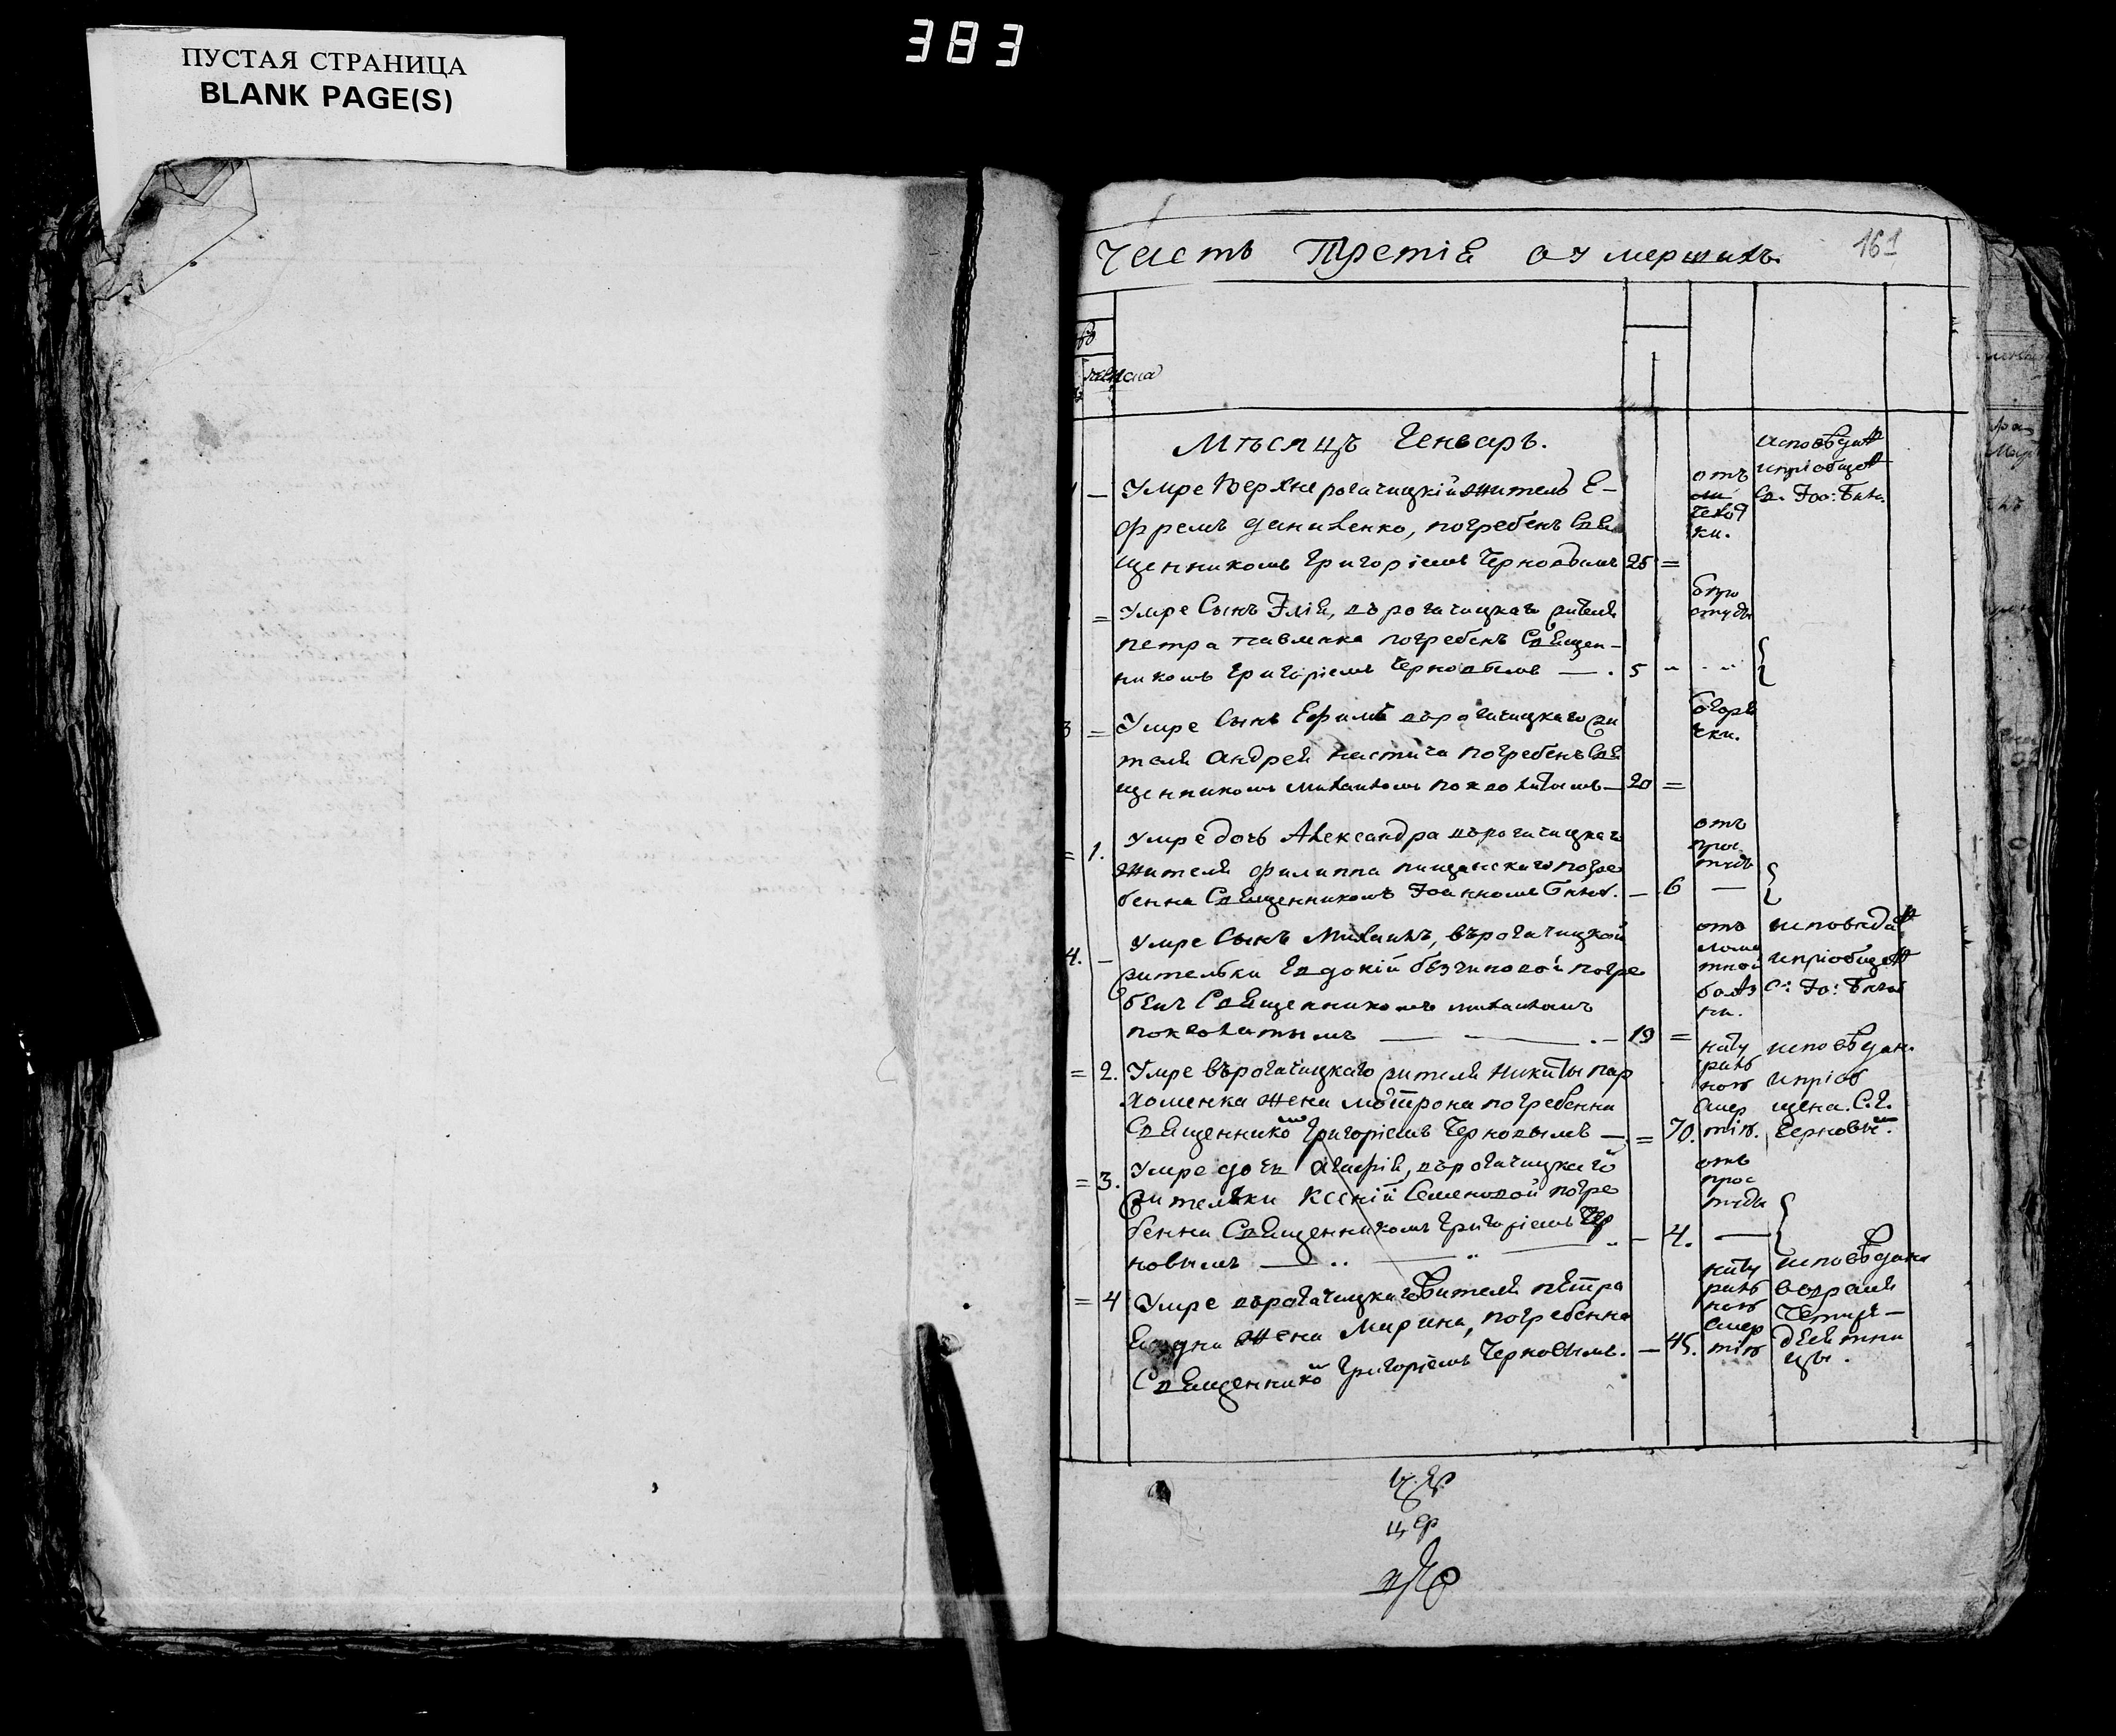 383
ПУСТАЯ СТРАНИЦА
BLANK PAGE(S)
Часть Третія оумершихъ.
161
женска
Мѣсяцъ Генварь.
1 — Умре Верхнерогачицкій житель Е-
фремъ Даниленко, погребенъ Свя
щенникомъ Григоріемъ Черновымъ 25 =
отъ
чехот
ки.
исповѣдан
и пріобщен
Св. Іоа: Бѣли.
= Умре Сынъ Ілія, вѣрогачицкаго жителя
петра павленка погребенъ Священ-
никомъ Григоріемъ Черновымъ — . 5
3 = Умре Сынъ Ефимъ вѣрогачицкаго жи
теля Андрея костыча погребенъ Свя
щенникомъ Михаиломъ покровитымъ — 20 =
отъ горя
чки.
= 1. Умре дочь Александра вѣрогачицкаго
жителя филиппа пищанскаго погре
бенна Священникомъ Іоанномъ Бѣлов. — 6 —
отъ
прос
туды
4. — Умре Сынъ Михаилъ, вѣрогачицкой
жительки Евдокіи безчиновой погре
бенъ Священникомъ михаиломъ
покровитымъ — 19 =
отъ
ломо
тной
болѣз
ни.
исповѣдан
и пріобщен
С: Іо: Бѣлов
= 2. Умре вѣрогачицкаго жителя никиты пар
хоменка жена мотрона погребенна
Священником Григоріемъ Черновымъ — = 70.
нату
раль
ною
смер
тію.
исповѣдан.
и пріоб
щена. С. Г.
Черновым.
= 3. Умре дочь Агафія, вѣрогачицкаго
жительки Ксеніи Семеновой погре
бенна Священникомъ Григоріемъ Чер
новымъ — .. — 4. —
отъ
прос
туды
= 4 Умре вѣрогачицкаго жителя петра
жена Марина, погребенна
Священником Григоріемъ Черновымъ. — 45.
нату
раль
ною
смер
тію
исповѣдана
вовремя
Четыре-
десятни
цы.
цер